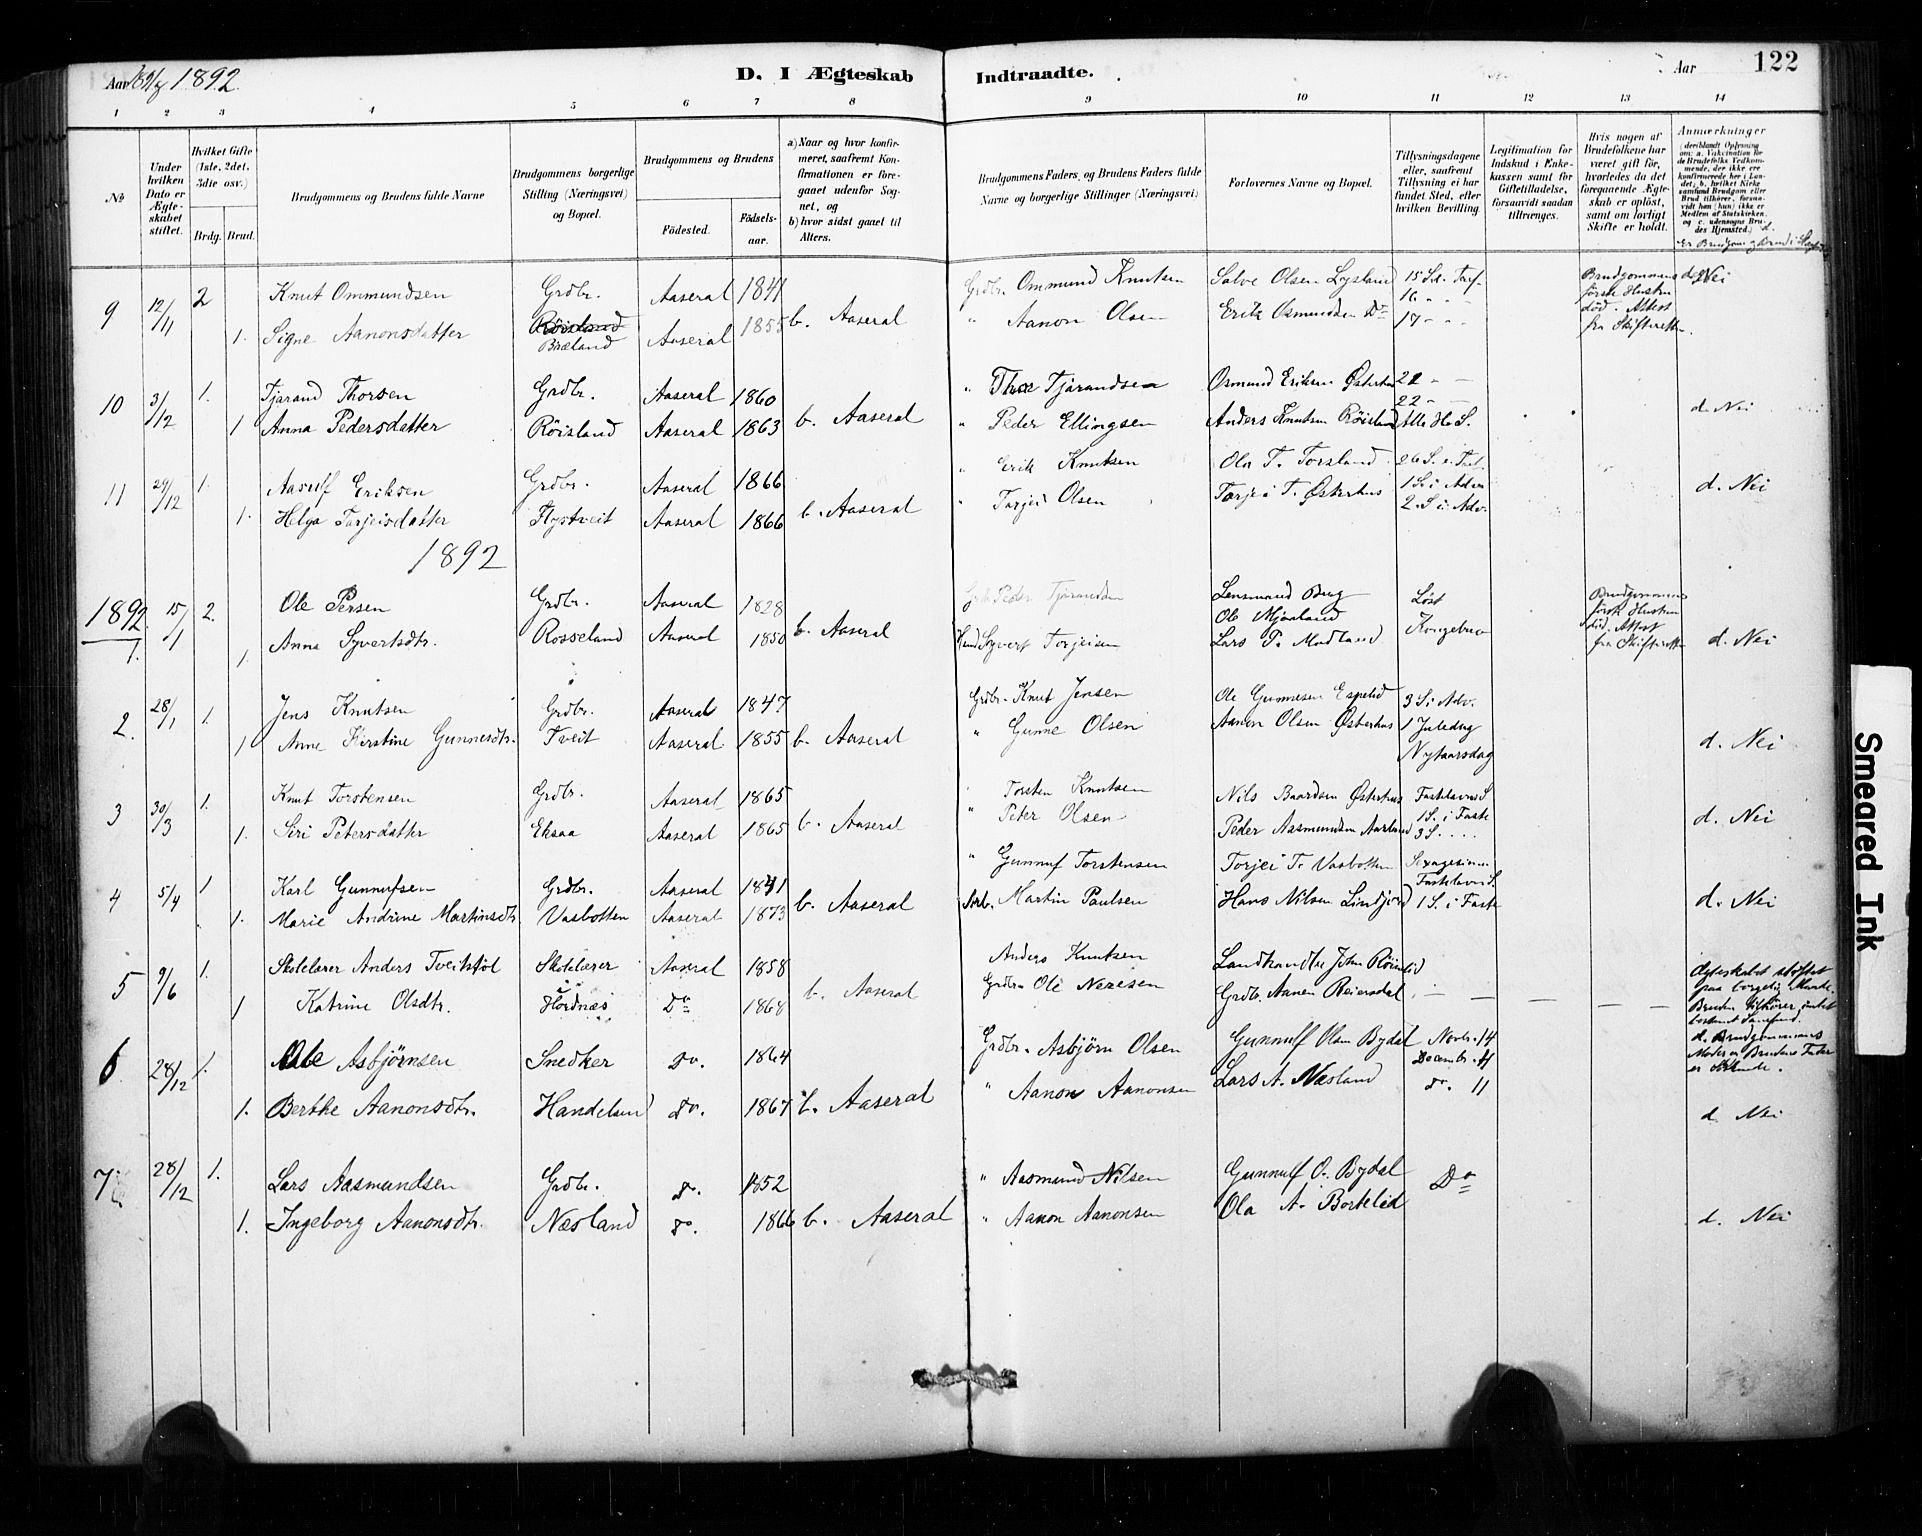 Aar 1891/ 1892.
D. I Ægteskab Indtraadte.
Aar 122
1 2 3 4 5 6 7 8 9 10 11 12 13 14
№
Under hvilken Dato er Ægteskabet stiftet.
Hvilket Gifte (1ste, 2det, 3die osv.)
Brdg. Brud.
Brudgommens og Brudens fulde Navne
Brudgommens borgerlige Stilling (Næringsvei) og Bopæl.
Brudgommens og Brudens
Födested. Födsels-aar.
a) Naar og hvor konfirmeret, saafremt Konfirmationen er foregaaet udenfor Sognet, og
b) hvor sidst gaaet til Alters.
Brudgommens Faders, og Brudens Faders fulde Navne og borgerlige Stillinger (Næringsvei)
Forlovernes Navne og Bopæl.
Tillysningsdagene eller, saafremt Tillysning ei har fundet Sted, efter hvilken Bevilling.
Legitimation for Indskud i Enkekassen samt for Giftetilladelse, forsaavidt saadan tiltrænges.
Hvis nogen af Brudefolkene har været gift för, hvorledes da det foregaaende Ægteskab er oplöst, samt om lovligt Skifte er holdt.
Anmærkninger
9 12/11 2 Knut Ommundsen Grdbr. Aaseral 1841 Grdbr. Ommund Knutsen Salve Olsen Logsland 15 S.e. Tref. Brudgommens første Hustru død. Attest fra Skifteretten. d. Nei
1. Signe Aanonsdatter Røisland Bræland Aaseral 1855 b. Aaseral " Aanon Olsen Erik Osmundsen Do 16 - - 17 - -
10 3/12 1. Tjerand Thorsen Grdbr. Aaseral 1860 " Thore Tjerandsen Osmund Eriksen Østerhus 21 - -
22 - -
1 Anna Pedersdatter Røisland Aaseral 1863 b. Aaseral " Peder Ellingsen Anders Knutsen Røisland Alle H. S. d. Nei
11 29/12 1. Aasulf Eriksen Grdbr. Aaseral 1866 " Erik Knutsen Ola T. Torsland 26 S. e. Tref.
1. Helga Tarjeisdatter Flystveit Aaseral 1866 b. Aaseral " Tarjei Olsen Tarjei T. Østerhus 1 S. i Adv. 2. S. i Adv. d. Nei
1892
1892. 1. 15/1 2. Ole Persen Grdbr. Aaseral 1828 Grdb. Peder Tjerandsen Lensmand Bug Løst Brudgommens første Hustru død. Attest fra Skifteretten
Ole Mjaaland
1. Anna Syvertsdtr. Rosseland Aaseral 1850 b. Aaseral Syvert Torjeisen Lars P. Modland Kongebrev d. Nei
2. 28/1 1. Jens Knutsen Grdbr. Aaseral 1847 Grdbr. Knut Jensen Ole Gunnesen Espelid 3 S. i Adv.
1 Anne Kirstine Gunnesdtr. Tveit Aaseral 1855 b. Aaseral " Gunne Olsen Aanon Olsen Østerhus 1 Juledag Nytaarsdag d. Nei
3 30/3 1. Knut Torstensen Grdbr. Aaseral 1865 " Torsten Knutsen Nils Baardsen Østerhus Fastelavns S.
1. Siri Petersdatter Eksaa Aaseral 1865 b. Aaseral " Peter Olsen Peder Aasmundsen 1 S. i Faste 3 S. . . . d. Nei
4 5/4 1 Karl Gunnufsen Grdbr. Aaseral 1841 " Gunnuf Torstensen Torjei T. Vasbotten Sexagesima Fastelavns S.
1. Marie Andrine Martinsdtr Vasbotten Aaseral 1873 b. Aaseral Martin Paulsen Hans Nilsen 1 S. i Faste d. Nei
5 9/6 1. Skolelærer Anders Tveitstøl Skolelærer Aaseral 1858 Anders Knutsen Landhandler John
1 Katrine Olsdtr. Hordnæs Do 1868 b. Aaseral Grdbr. Ole Nerisen Grdbr. Aanen Reiersdal - - - - -
Ægteskabet stiftet paa borgerlig Maade. Bruden tilhører intet bestemt Samfund. d. Brudgommens Moder er Brudens Fader er Søskende.
6 28/12 1. Ole Asbjørnsen Snedker Do. 1864 Grdbr. Asbjørn Olsen Gunnulf Olsen Bydal Novbr. 14 Decembr. 4
1. Berthe Aanonsdtr. Handeland do. 1867 b. Aaseral " Aanon Aanonsen Lars A. Næsland do. 11 d. Nei
7. 28/12 1. Lars Aasmundsen Grdbr. do. 1852 " Aasmund Nilsen Gunnulf O. Bydal Do
1. Ingeborg Aanonsdtr. Næsland do. 1866 b. Aaseral " Aanon Aanonsen Ola A. Bortelid d. Nei
Smeared Ink